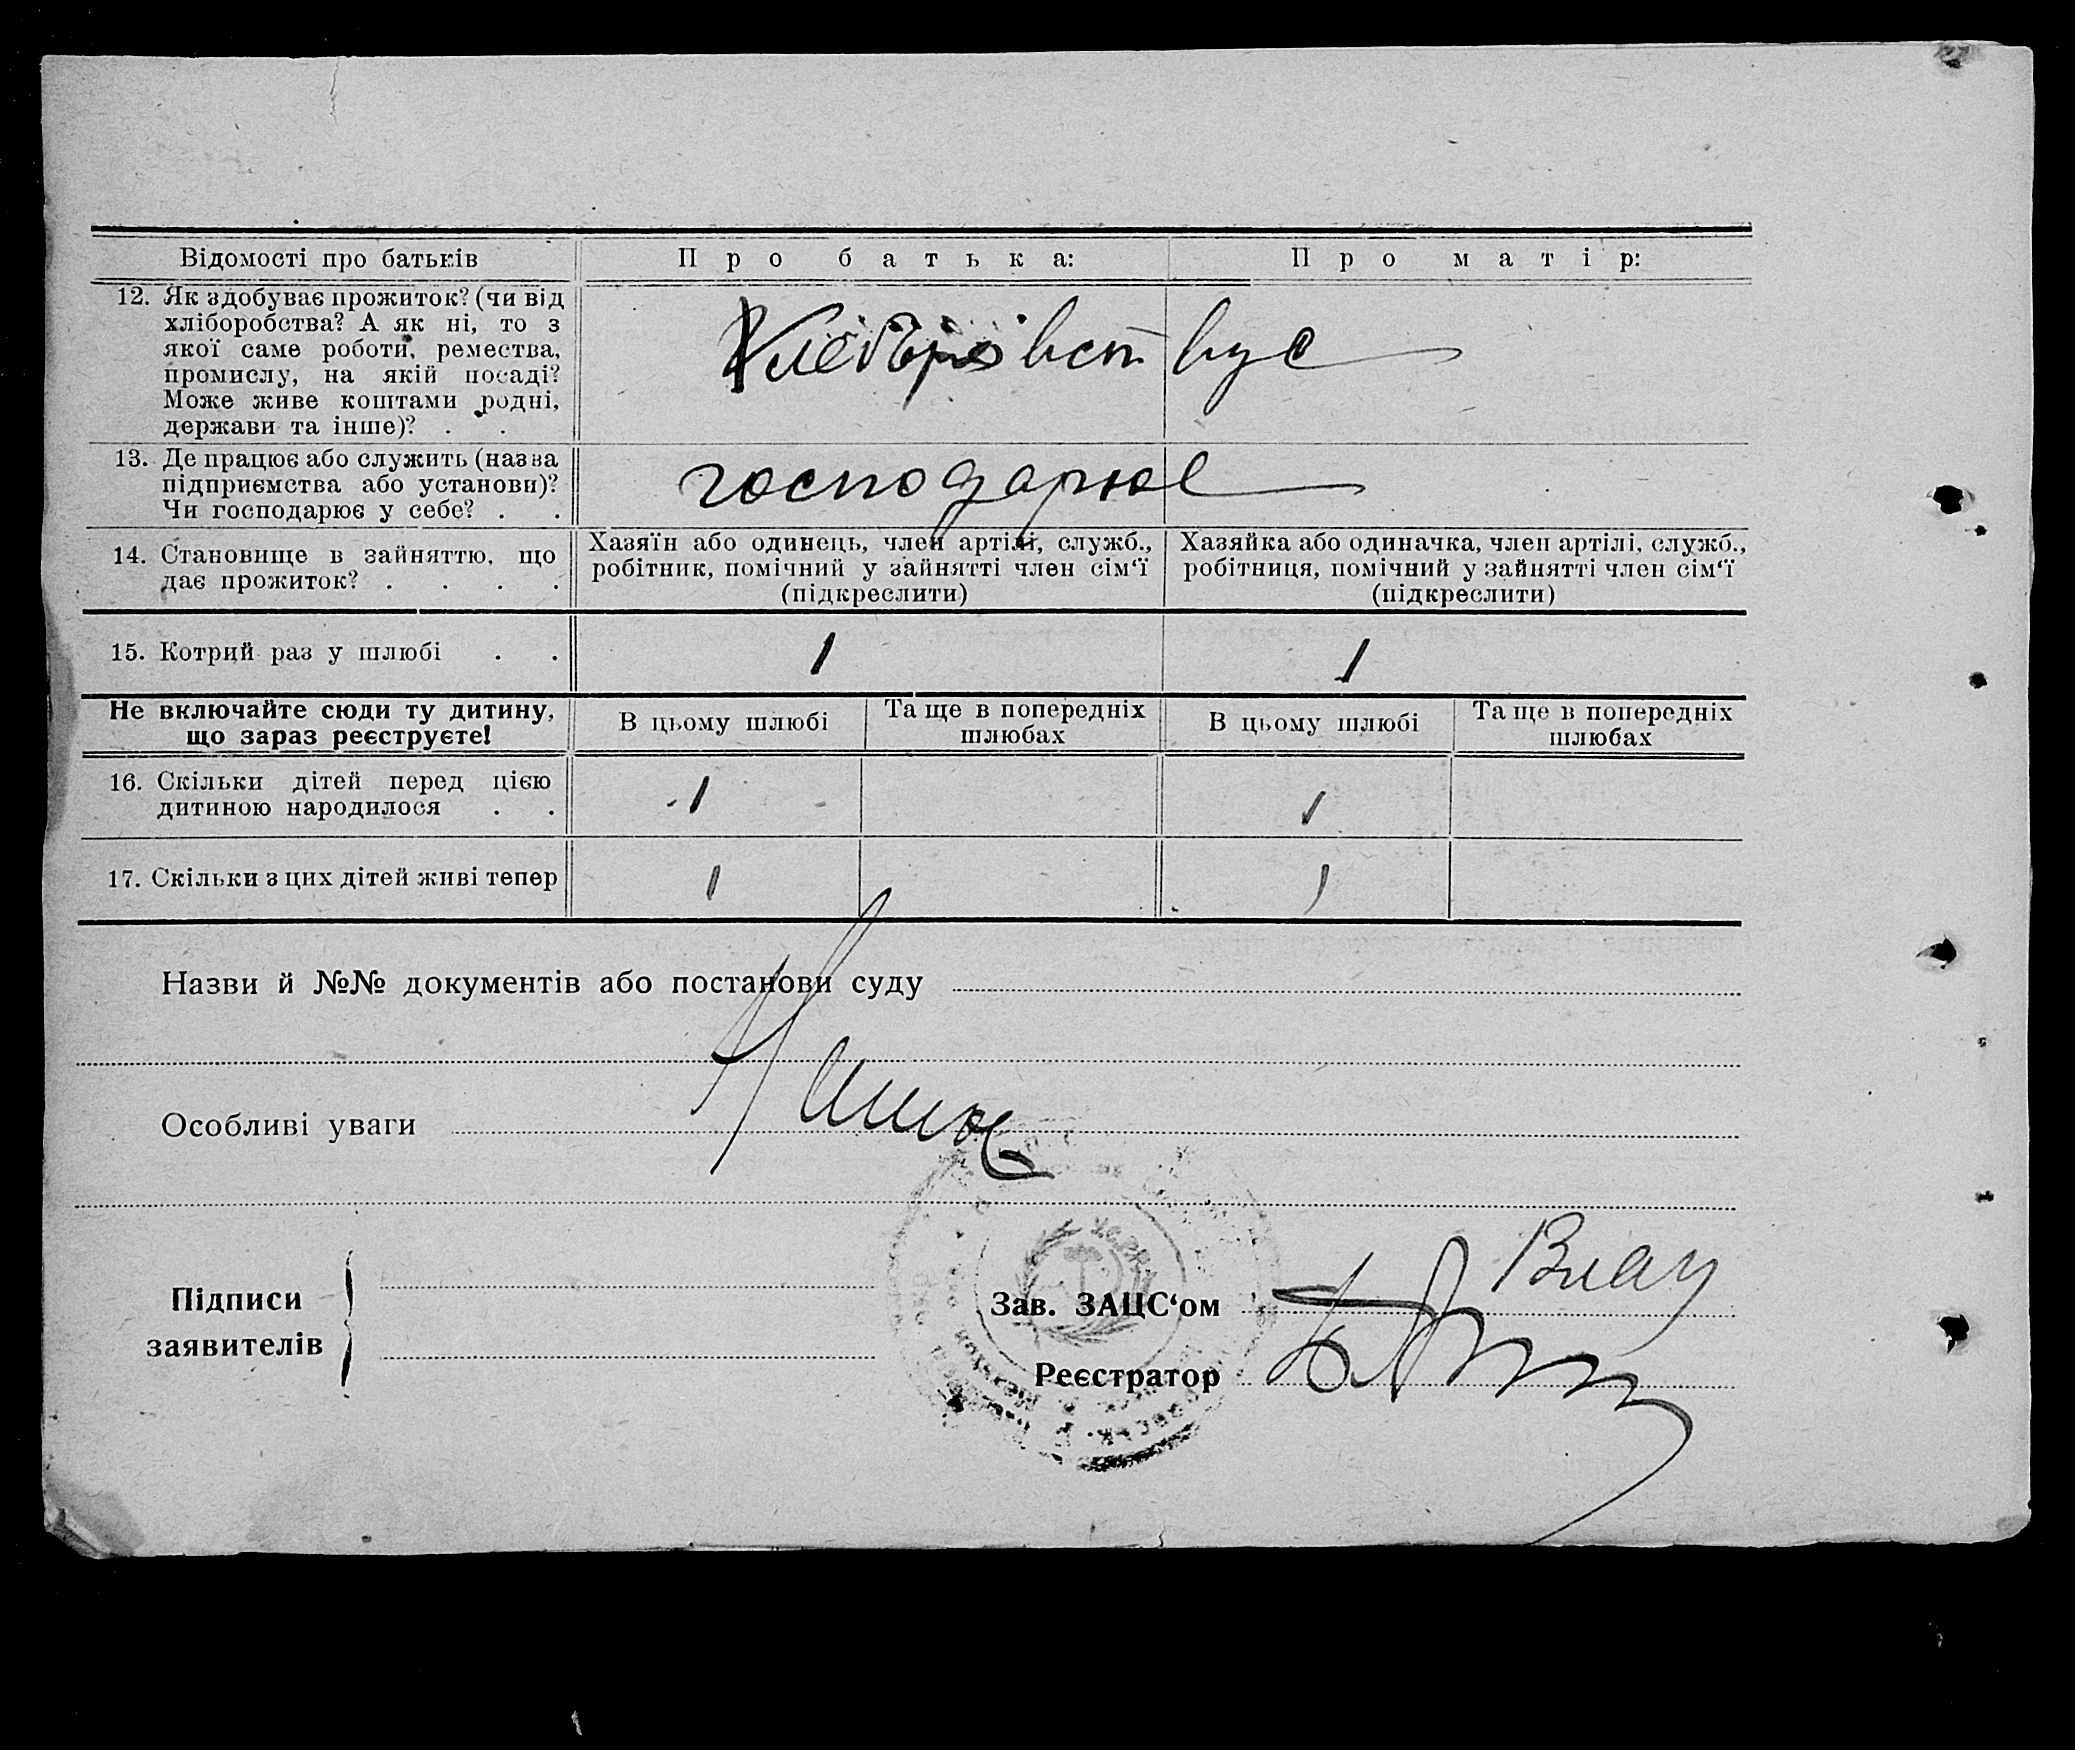 Відомості про батьків
Про батька:
Про матір:
12. Як здобуває прожиток? (чи від
хліборобства? А як ні, то з
якої саме роботи, ремества,
промислу, на якій посаді?
Може живе коштами родні,
держави та інше)? . .
13. Де працює або служить (назва
підприємства або установи)?
Чи господарює у себе? . .
господарює
14. Становище в зайняттю, що
дає прожиток? . . . .
Хазяїн або одинець, член артілі, служб.,
робітник, помічний у зайнятті член сім‘ї
(підкреслити)
Хазяйка або одиначка, член артілі, служб.,
робітниця, помічний у зайнятті член сім‘ї
(підкреслити)
15. Котрий раз у шлюбі . .
1
1
Не включайте сюди ту дитину,
що зараз реєструєте!
В цьому шлюбі
Та ще в попередніх
шлюбах
В цьому шлюбі
Та ще в попередніх
шлюбах
16. Скільки дітей перед цією
дитиною народилося . .
1
1
17. Скільки з цих дітей живі тепер
1
1
Назви й №№ документів або постанови суду
Особливі уваги
Підписи
заявителів
Зав. ЗАЦС‘ом
Реєстратор